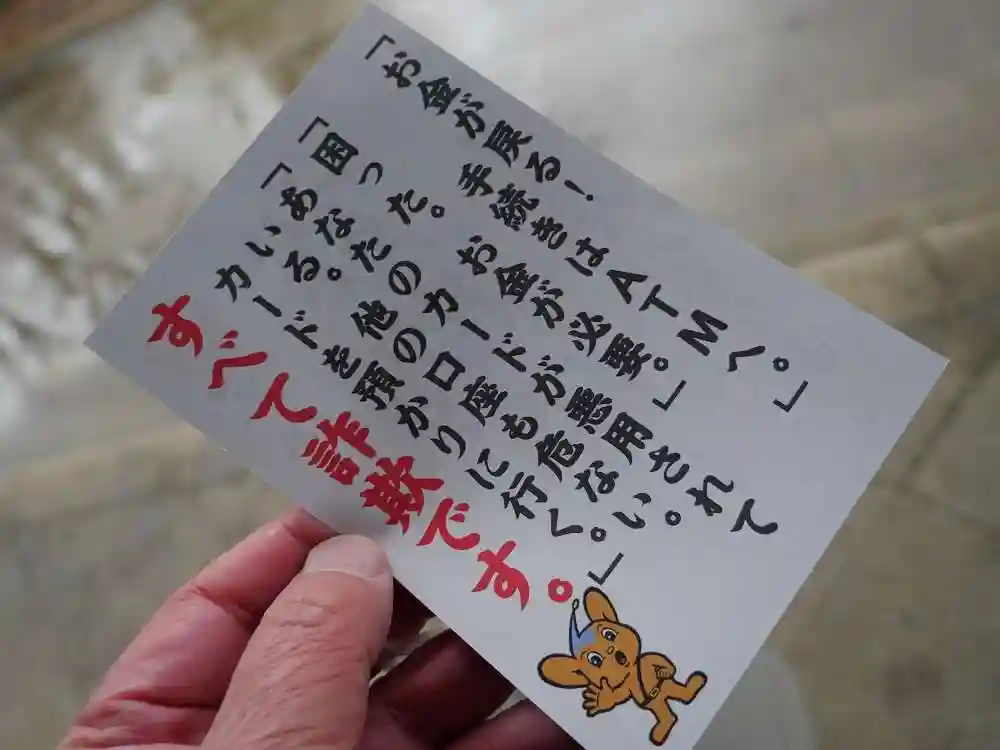 「お金が戻る！
手続きはATMへ。」
「困った。お金が必要。」
「あなたのカードが悪用されて
いる。他の口座も危ない。
カードを預かりに行く。」
すべて詐欺です。